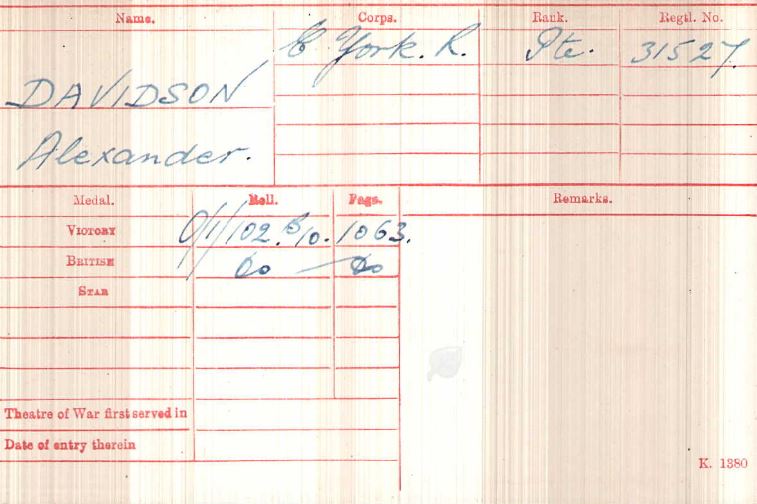 Name. Corps. Rank. Regtl. No.
E York. R. Pte. 31527.
DAVIDSON
Alexander.
Medal. Roll. Page. Remarks.
VICTORY O/1/102.B/10. 1063.
BRITISH Do Do
STAR
Theatre of War first served in
Date of entry therein
K. 1380